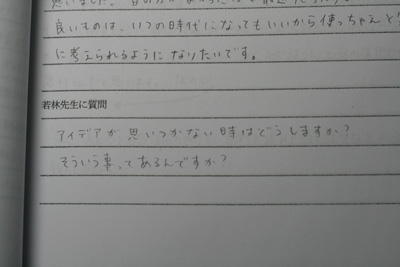 思いました。
良いものは、いつの時代になってもいいから使っちゃえと
に考えられるようになりたいです。
若林先生に質問
アイデアが思いつかない時はどうしますか?
そういう事ってあるんですか?